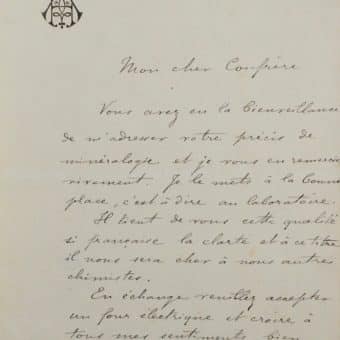 Mon cher Confrère
Vous avez eu la bienveillance
de m'adresser votre précis de
minéralogie et je vous en remercie
vivement. Je le mets à la bonne
place, c'est à dire au laboratoire.
Il tient de vous cette qualité
si française la clarté et à ce titre
il nous sera cher à nous autres
chimistes.
En échange veuillez accepter
un four électrique et croire à
tous mes sentiments bien